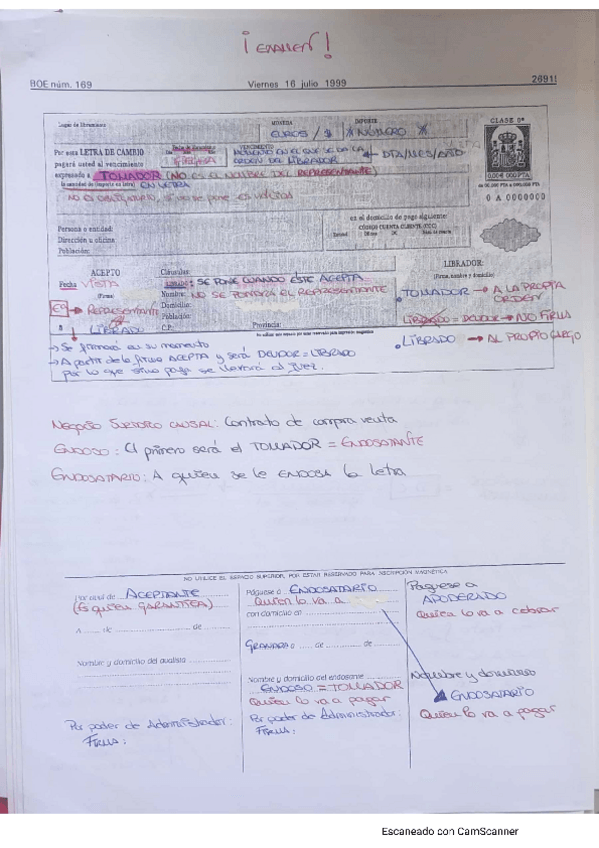 ¡EXAMEN!
BOE núm. 169 Viernes 16 julio 1999 26911
Lugar de libramiento MONEDA IMPORTE
EUROS / $ * NÚMERO *
CLASE 8ª
Por esta LETRA DE CAMBIO VENCIMIENTO
pagará usted al vencimiento
ORDEN DEL LIBRADOR ← DÍA/MES/AÑO
expresado a TOMADOR (NO ES EL NOMBRE DEL REPRESENTANTE)
0,00€ 000 PTA
EN LETRA
0 A 0000000
en el domicilio de pago siguiente:
Persona o entidad: CÓDIGO CUENTA CLIENTE (CCC)
Dirección u oficina
Población:
ACEPTO Cláusulas: LIBRADOR:
(Firma, nombre y domicilio)
Fecha VISTA LIBRADO: SE PONE CUANDO ÉSTE ACEPTA
Nombre: NO SE PONDRÁ EL REPRESENTANTE
TOMADOR → A LA PROPIA ORDEN
Domicilio:
→ REPRESENTANTE
Población:
LIBRADO = DEUDOR → NO FIRMA
LIBRADO C.P. Provincia:
LIBRADO → AL PROPIO CARGO
→ Se firmará en su momento
→ A partir de la firma ACEPTA y será DEUDOR = LIBRADO
por lo que si no paga se llevará al JUEZ.
NEGOCIO JURÍDICO CAUSAL: Contrato de compra venta
ENDOSO: El primero será el TOMADOR = ENDOSATANTE
ENDOSATARIO: A quien se le ENDOSA la letra
NO UTILICE EL ESPACIO SUPERIOR, POR ESTAR RESERVADO PARA INSCRIPCIÓN MAGNÉTICA
Por aval de ACEPTANTE
(Es quien GARANTIZA)
A ..... de ..... de
Nombre y domicilio del avalista
Por poder de Administrador:
FIRMA:
Páguese a ENDOSATARIO
Quien lo va a
con domicilio en
GRANADA a ..... de ..... de
Nombre y domicilio del endosante
ENDOSO = TOMADOR
Quien lo va a pagar
Por poder de Administrador:
FIRMA:
Páguese a
APODERADO
Quien lo va a cobrar
Nombre y domicilio
ENDOSATARIO
Quien lo va a pagar
Escaneado con CamScanner